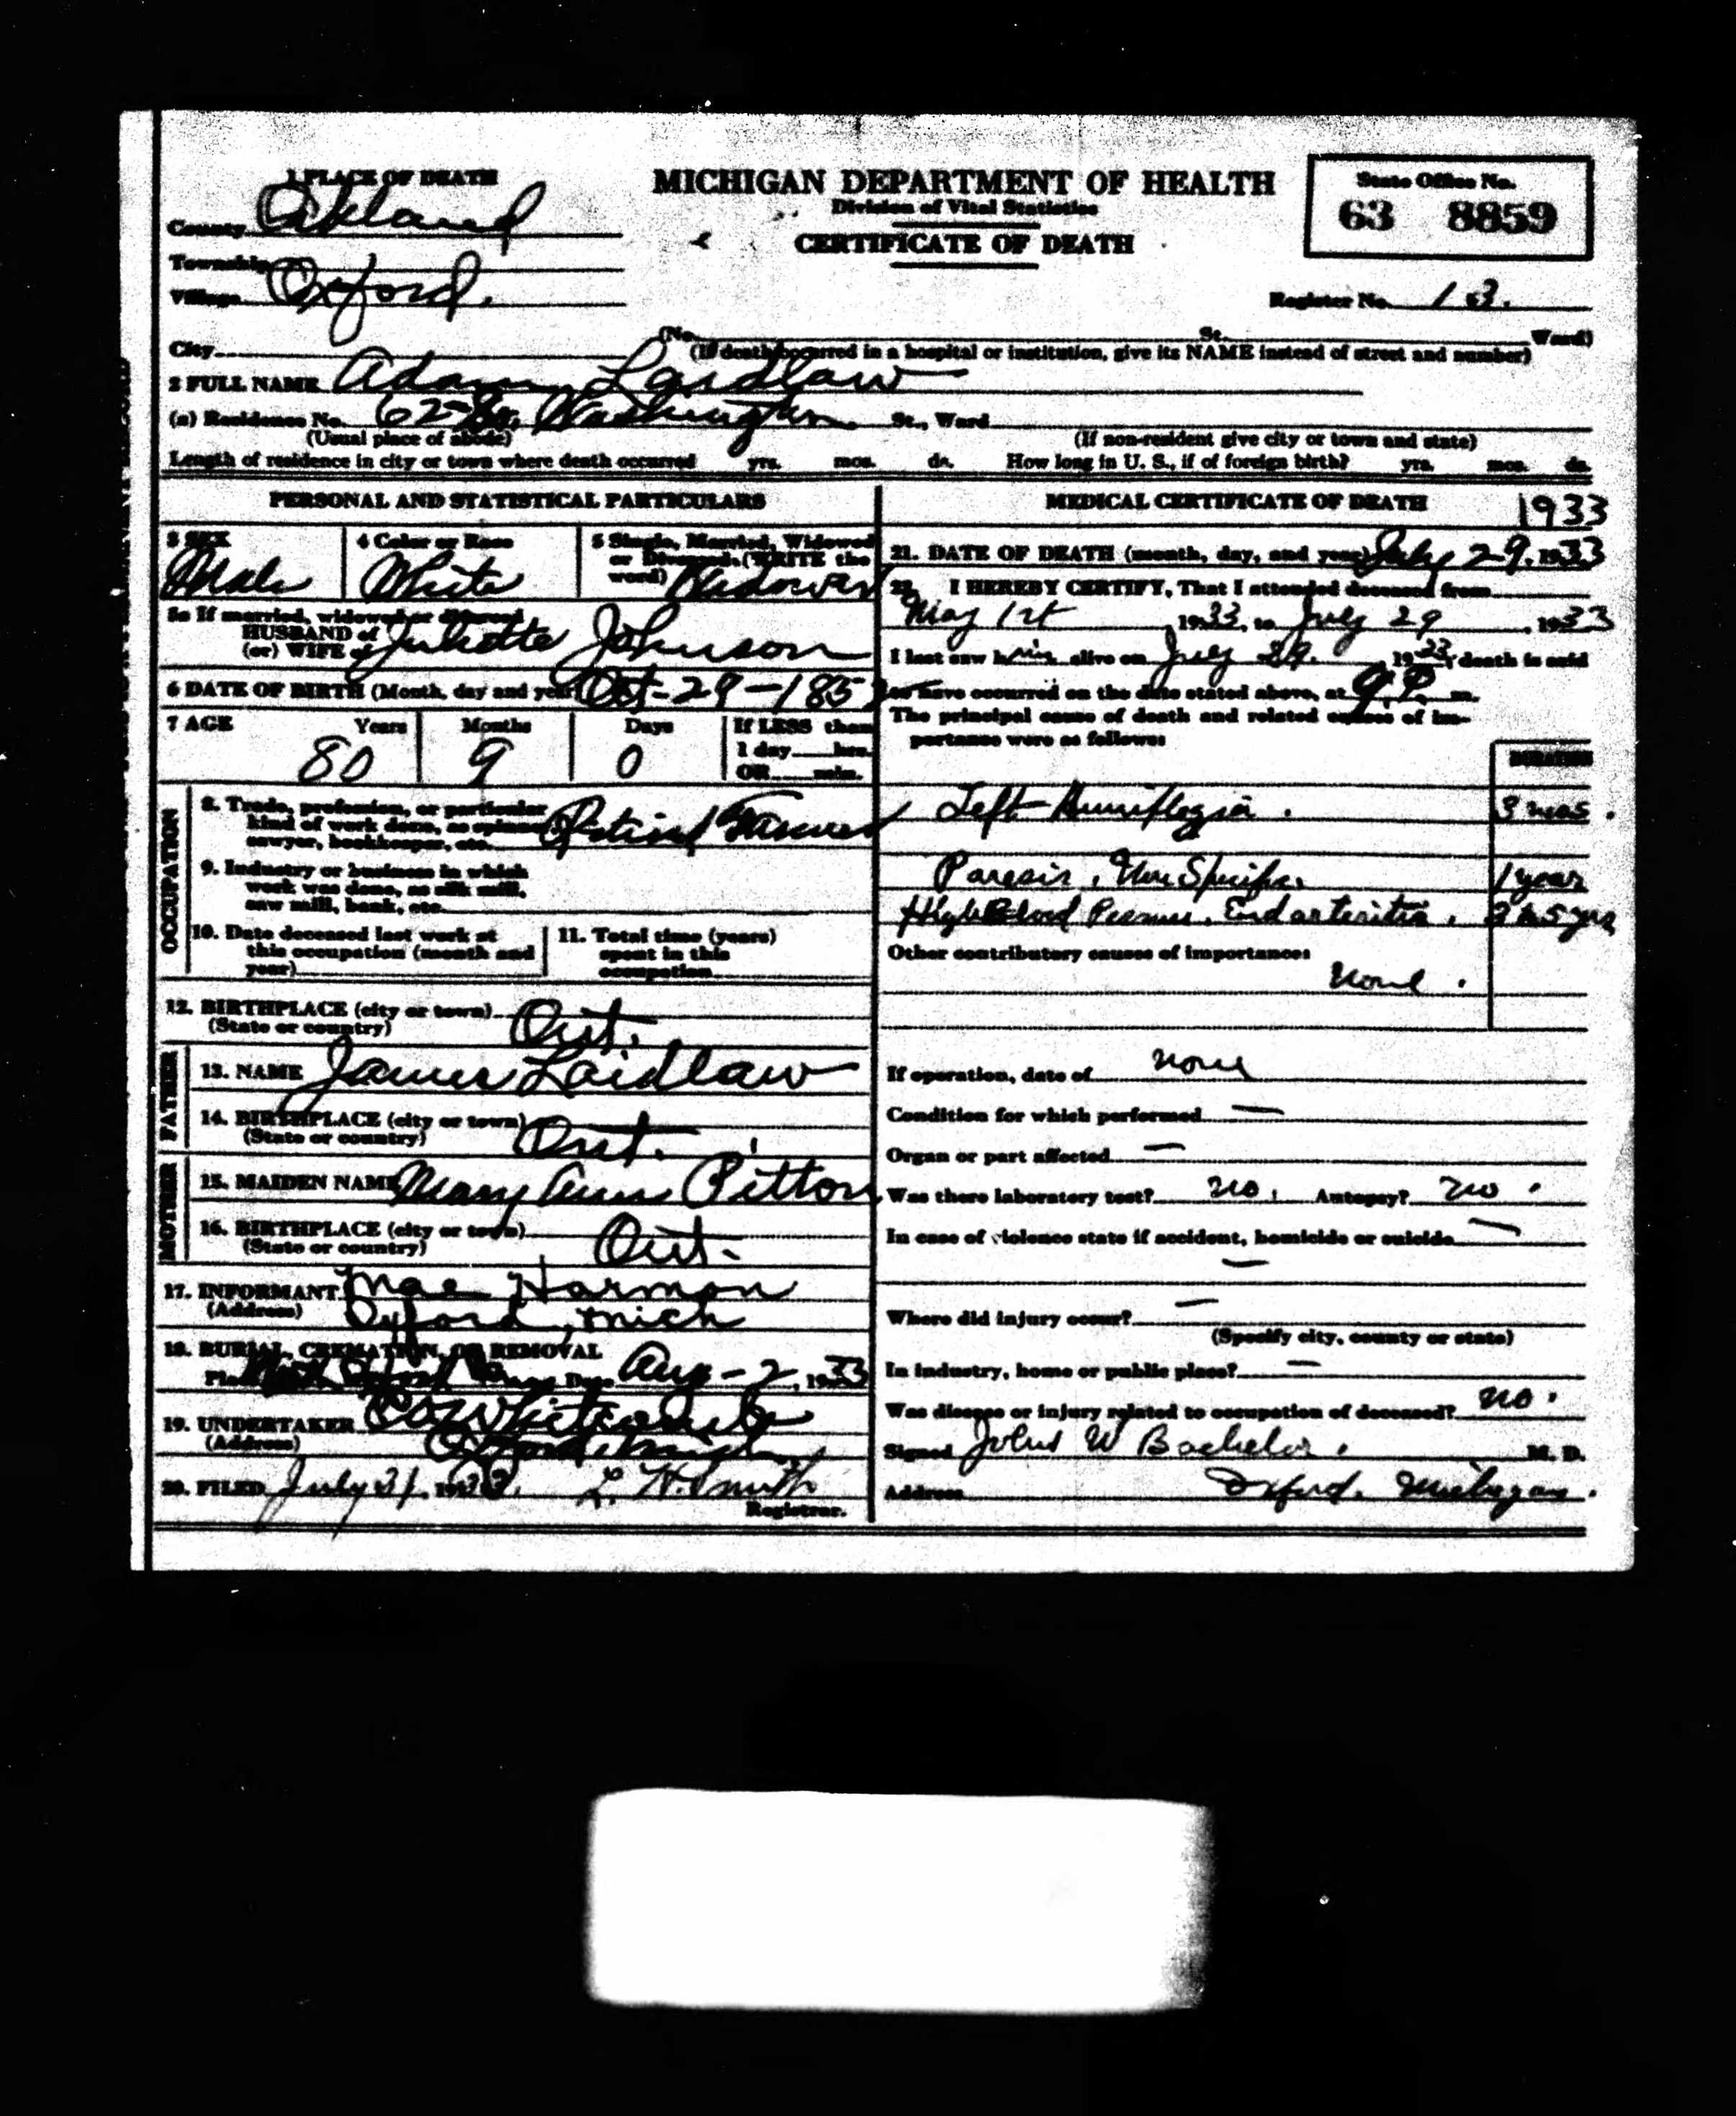 1 PLACE OF DEATH
County Oakland
Township
Village Oxford.
City
MICHIGAN DEPARTMENT OF HEALTH
Division of Vital Statistics
CERTIFICATE OF DEATH
State Office No.
63 8859
Register No. 13.
(No. St. Ward)
(If death occurred in a hospital or institution, give its NAME instead of street and number)
2 FULL NAME Adam Laidlaw
(a) Residence No. 62 Washington St., Ward
(Usual place of abode) (If non-resident give city or town and state)
Length of residence in city or town where death occurred yrs. mos. ds. How long in U. S., if of foreign birth? yrs. mos. ds.
PERSONAL AND STATISTICAL PARTICULARS
3 SEX
Male
4 Color or Race
White
5 Single, Married, Widowed
or Divorced. (WRITE the
word) Widower
5a If married, widowed or divorced
HUSBAND of
(or) WIFE of Juliette Johnson
6 DATE OF BIRTH (Month, day and year) Oct-29-185
7 AGE Years Months Days If LESS than
1 day hrs.
OR min.
80 9 0
OCCUPATION
8. Trade, profession, or particular
kind of work done, as spinner,
sawyer, bookkeeper, etc. Retired Farmer
9. Industry or business in which
work was done, as silk mill,
saw mill, bank, etc.
10. Date deceased last work at
this occupation (month and
year)
11. Total time (years)
spent in this
occupation
12. BIRTHPLACE (city or town)
(State or country) Ont.
FATHER
13. NAME James Laidlaw
14. BIRTHPLACE (city or town)
(State or country) Ont.
MOTHER
15. MAIDEN NAME Mary Ann Pitton
16. BIRTHPLACE (city or town)
(State or country) Ont.
17. INFORMANT Mae Harmon
(Address) Oxford, Mich
18. BURIAL, CREMATION, OR REMOVAL
Place Date Aug-2, 1933
19. UNDERTAKER
(Address) Oxford, Mich
20. FILED July 31 1933. L. H. Smith
Registrar.
MEDICAL CERTIFICATE OF DEATH 1933
21. DATE OF DEATH (month, day, and year) July 29. 1933
22. I HEREBY CERTIFY, That I attended deceased from
May 1st 1933, to July 29, 1933
I last saw him alive on July 29. 1933, death is said
to have occurred on the date stated above, at 9 P. m.
The principal cause of death and related causes of im-
portance were as follows:
DURATION
Left Hemiplegia. 3 mos.
Paresis, Non Specific. 1 year
High Blood Pressure, Endarteritis. 3 to 5 yrs
Other contributory causes of importance:
None.
If operation, date of none
Condition for which performed —
Organ or part affected —
Was there laboratory test? no. Autopsy? no.
In case of violence state if accident, homicide or suicide —
—
Where did injury occur? —
(Specify city, county or state)
In industry, home or public place? —
Was disease or injury related to occupation of deceased? no.
Signed W Bachelor. M. D.
Address Oxford. Michigan.